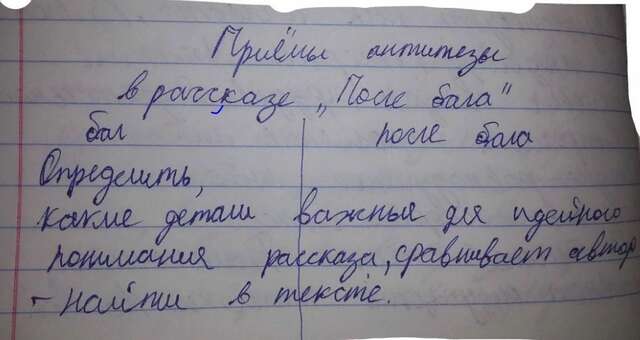 Приёмы антитезы
в рассказе "После бала"
бал после бала
Определить,
какие детали важные для идейного
понимания рассказа, сравнивает автор
- найти в тексте.